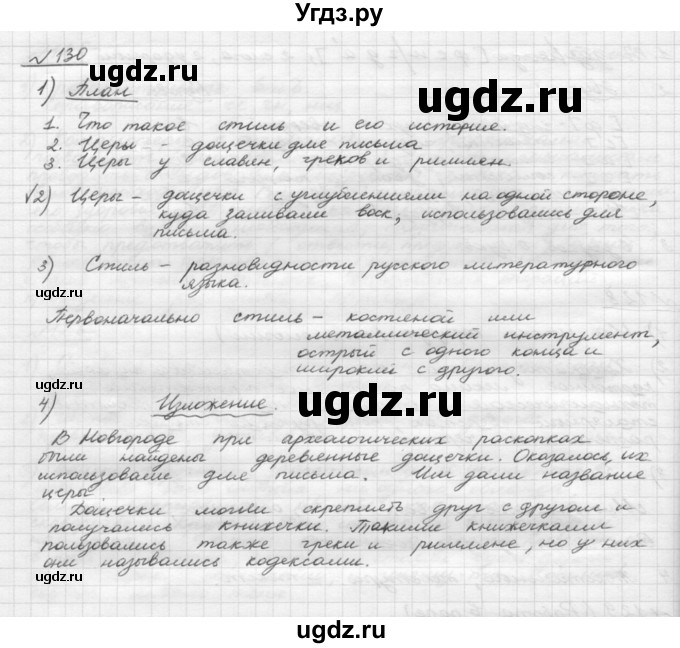 Угдз.ру
№130
ugdz.ru
ugdz.ru
1) План
1. Что такое стиль и его история.
2. Церы - дощечки для письма
3. Церы у славян, греков и римлян.
ugdz.ru
√2) Церы - дощечки с углублениями на одной стороне,
куда заливали воск, использовались для
письма.
3) Стиль - разновидности русского литературного
языка.
ugdz.ru
Первоначально стиль - костяной или
металлический инструмент,
острый с одного конца и
широкий с другого.
ugdz.ru
ugdz.ru
4) Изложение.
В Новгороде при археологических раскопках
были найдены деревянные дощечки. Оказалось, их
использовали для письма. Им дали название
церы.
Дощечки могли скреплять друг с другом и
получались книжечки. Такими книжечками
пользовались также греки и римляне, но у них
они назывались кодексами.
ugdz.ru
ugdz.ru
ugdz.ru